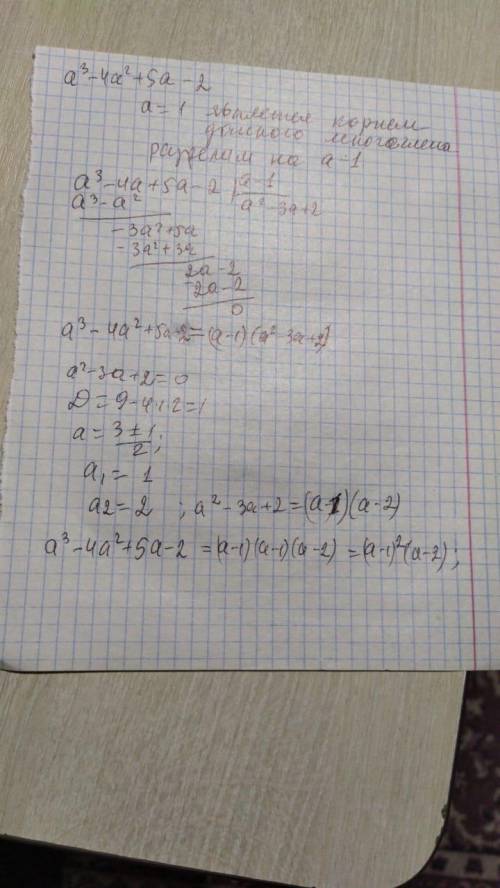 a³-4a²+5a-2
a=1 является корнем
данного многочлена
разделим на a-1
a³-4a+5a-2 | a-1
a³-a² a²-3a+2
-3a²+5a
-3a²+3a
2a-2
2a-2
0
a³-4a²+5a-2=(a-1)(a²-3a+2)
a²-3a+2=0
D=9-4·2=1
a=3±1/2;
a₁=1
a2=2 ; a²-3a+2=(a-1)(a-2)
a³-4a²+5a-2=(a-1)(a-1)(a-2)=(a-1)²(a-2);